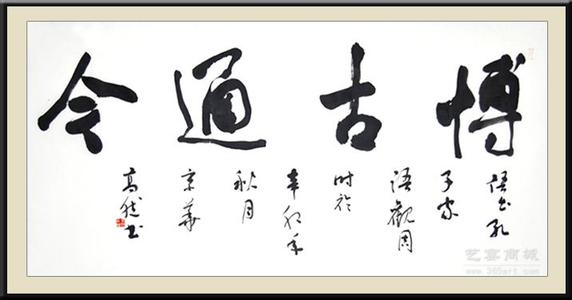 博古通今
语出孔
子家
语觀周
时於
辛卯年
秋月
京華
高然书
艺宴商城
www.365art.com